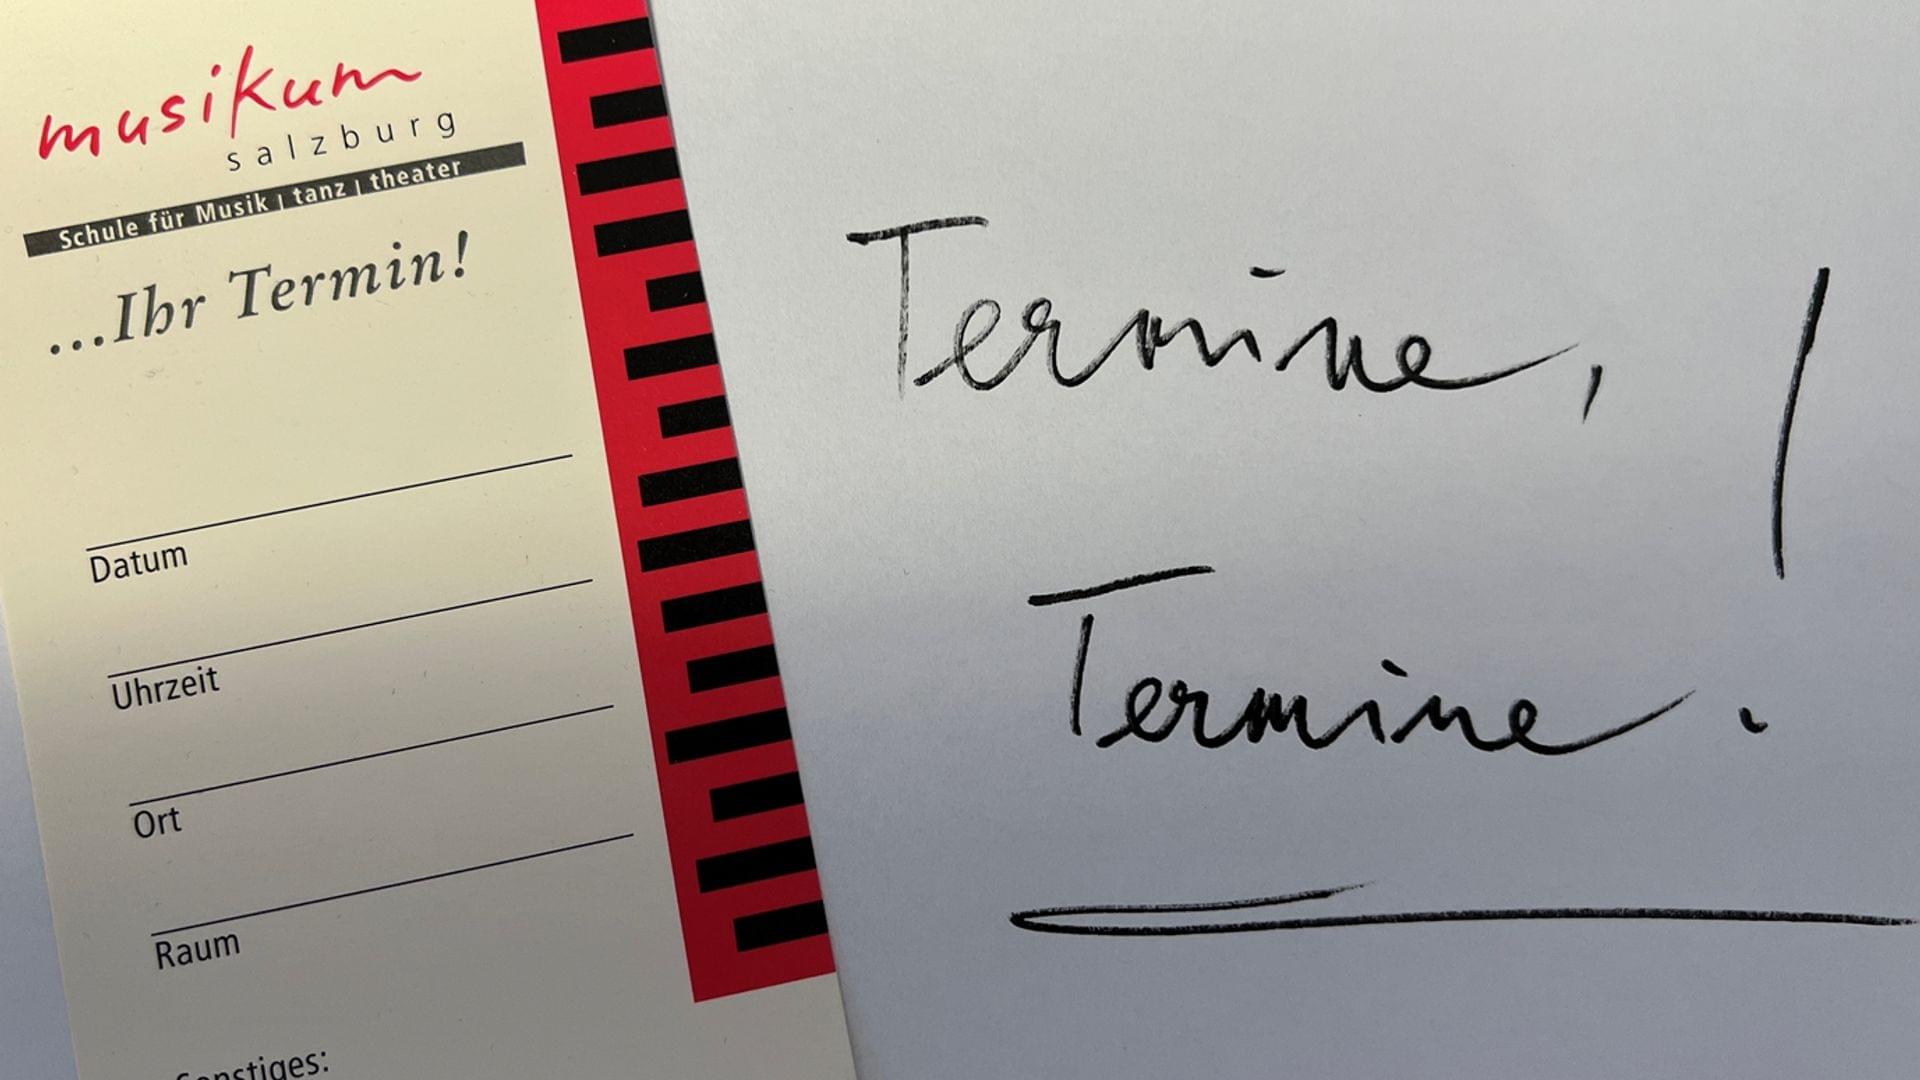 musikum
salzburg
Schule für Musik | tanz | theater
...Ihr Termin!
Datum
Uhrzeit
Ort
Raum
Sonstiges:
Termine,
Termine!